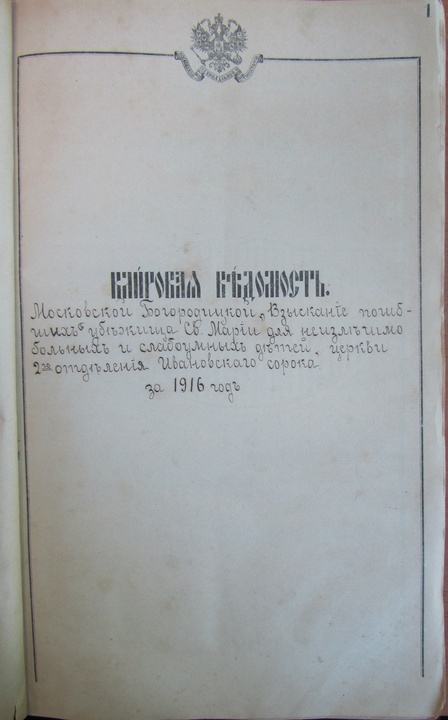 1
КЛИРОВАЯ ВѢДОМОСТЬ.
Московской Богородицкой „Взысканіе погиб-
шихъ" убѣжища Св. Маріи для неизлѣчимо
больныхъ и слабоумныхъ дѣтей, церкви
2го отдѣленія Ивановского сорока
за 1916 годъ